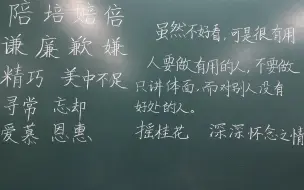 陪培赔倍
谦廉歉嫌
精巧 美中不足
寻常 忘却
爱慕 恩惠
虽然不好看，可是很有用
人要做有用的人，不要做
只讲体面，而对别人没有
好处的人。
摇桂花 深深怀念之情